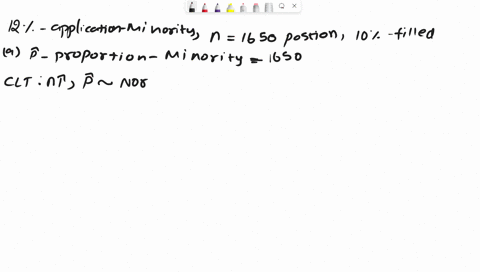 12% - application-Minority, n = 1650 postion, 10% -filled
(a) p̂ - proportion - Minority = 1650
CLT : n↑, p̂ ~ Nor